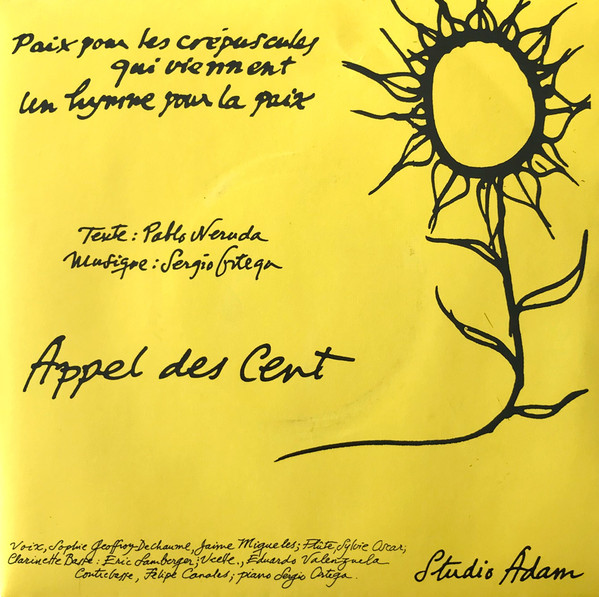 Paix pour les crépuscules
qui viennent
un hymne pour la paix
Texte : Pablo Neruda
Musique : Sergio Ortega
Appel des Cent
Voix, Sophie Geoffroy-Dechaume, Jaime Migueles; Flûte, Sylvie Oscar;
Clarinette Basse : Eric Lamberger; Vcelle., Eduardo Valenzuela
Contrebasse, Felipe Canales; piano Sergio Ortega.
Studio Adam